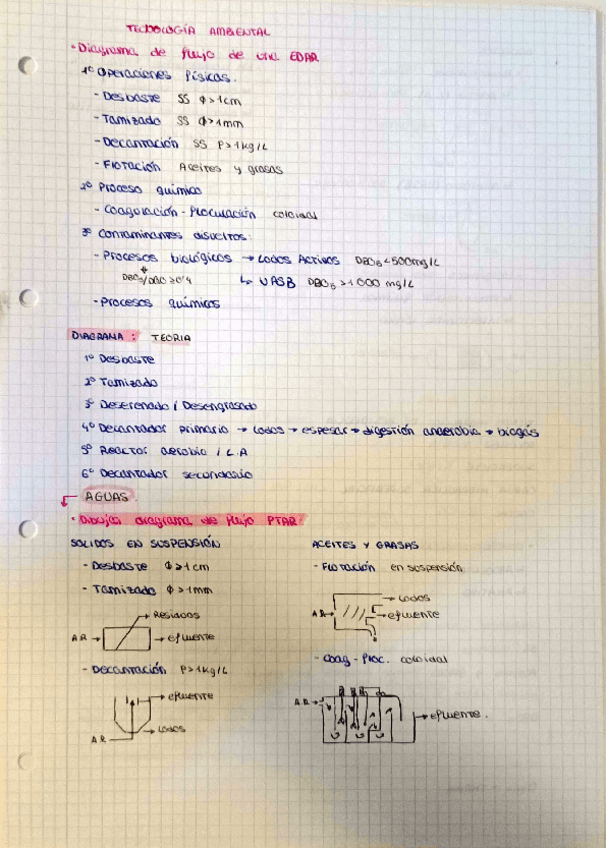 TECNOLOGÍA AMBIENTAL
· Diagrama de flujo de una EDAR
1º Operaciones físicas.
- Desbaste SS Φ>1cm
- Tamizado SS Φ>1mm
- Decantación SS P>1kg/L
- Flotación Aceites y grasas
2º Proceso químico
- Coagulación - Floculación coloidal
3º Contaminantes disueltos:
- Procesos biológicos → Lodos Activos DBO5<500mg/L
DBO5/DQO ≥0'4 ↳ UASB DBO5>1000 mg/L
- Procesos químicos
DIAGRAMA: TEORIA
1º Desbaste
2º Tamizado
3º Desarenado i Desengrasado
4º Decantador primario → lodos → espesar → digestión anaerobia → biogás
5º Reactor aerobio i L.A
6º Decantador secundario
AGUAS.
· Dibujar diagrama de flujo PTAR:
SOLIDOS EN SUSPENSIÓN
- Desbaste Φ>1cm
- Tamizado Φ>1mm
Residuos
A.R → → efluente
- Decantación P>1kg/L
→ efluente
A.R → lodos
ACEITES Y GRASAS
- Flotación en suspensión
→ Lodos
A.R → → efluente
- Coag - Floc. coloidal
A.R →
→ efluente.